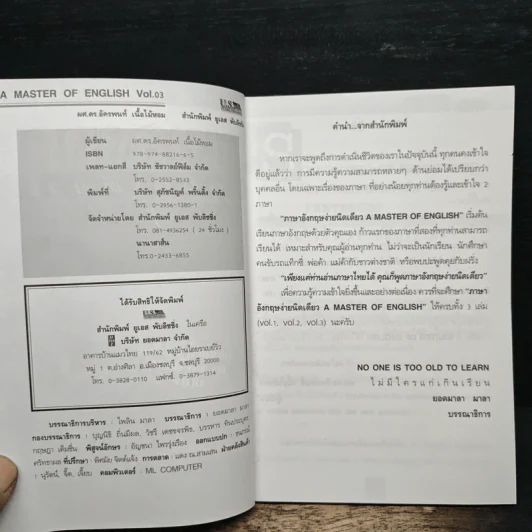 A MASTER OF ENGLISH Vol.03
ผศ.ดร.อัครพนท์ เนื้อไม้หอม สำนักพิมพ์ ยูเอส พับลิชชิ่ง
ผู้เขียน ผศ.ดร.อัครพนท์ เนื้อไม้หอม
ISBN 978-974-88216-6-5
เพลท-แยกสี บริษัท ชัชวาลย์ฟิล์ม จำกัด
โทร. 0-2552-8533
พิมพ์ที่ บริษัท สุภัชนิญค์ พริ้นติ้ง จำกัด
โทร. 0-2956-1380-1
จัดจำหน่ายโดย สำนักพิมพ์ ยูเอส พับลิชชิ่ง
โทร. 081-4936254 ( 24 ชั่วโมง )
นานาสาส์น
โทร. 0-2433-6855
ได้รับสิทธิให้จัดพิมพ์
สำนักพิมพ์ ยูเอส พับลิชชิ่ง ในเครือ
บริษัท ยอดมาลา จำกัด
อาคารบ้านแมวไทย 119/62 หมู่บ้านไอยราเบย์วิว
หมู่ 1 ต.อ่างศิลา อ.เมืองชลบุรี จ.ชลบุรี 20000
โทร. 0-3828-0110 แฟกซ์. 0-3879-1314
บรรณาธิการบริหาร : ไพลิน มาลา บรรณาธิการ : ยอดมาลา มาลา
กองบรรณาธิการ : บุญนิธิ
กฤษฎา เต็มชื่น พิสูจน์อักษร : อัญชนา ไพรรุ่งเรือง ออกแบบปก :
ที่ปรึกษา : พิศมัย จิตต์แจ้ง การตลาด : แดง ณ.สามแสน
: นุรัตน์, จี๊ด, เจี๊ยบ คอมพิวเตอร์ : ML COMPUTER
คำนำ...จากสำนักพิมพ์
หากเราจะพูดถึงการดำเนินชีวิตของเราในปัจจุบันนี้ ทุกคนคงเข้าใจ
ดีอยู่แล้วว่า การมีความรู้ความสามารถหลายๆ ด้านย่อมได้เปรียบกว่า
บุคคลอื่น โดยเฉพาะเรื่องของภาษา ที่อย่างน้อยทุกท่านต้องรู้และเข้าใจ 2
ภาษา
"ภาษาอังกฤษง่ายนิดเดียว A MASTER OF ENGLISH" เริ่มต้น
เรียนภาษาอังกฤษด้วยตัวคุณเอง ก้าวแรกของภาษาที่สองที่ทุกท่านสามารถ
เรียนได้ เหมาะสำหรับคุณผู้อ่านทุกท่าน ไม่ว่าจะเป็นนักเรียน นักศึกษา
คนขับรถแท็กซี่ พ่อค้า แม่ค้ากับชาวต่างชาติ หรือพบปะพูดคุยกับฝรั่ง
"เพียงแค่ท่านอ่านภาษาไทยได้ คุณก็พูดภาษาอังกฤษง่ายนิดเดียว"
เพื่อความรู้ความเข้าใจยิ่งขึ้นและอย่างต่อเนื่อง ควรที่จะศึกษา "ภาษา
อังกฤษง่ายนิดเดียว A MASTER OF ENGLISH" ให้ครบทั้ง 3 เล่ม
(vol.1, vol.2, vol.3) นะครับ
NO ONE IS TOO OLD TO LEARN
ไม่มีใครแก่เกินเรียน
ยอดมาลา มาลา
บรรณาธิการ